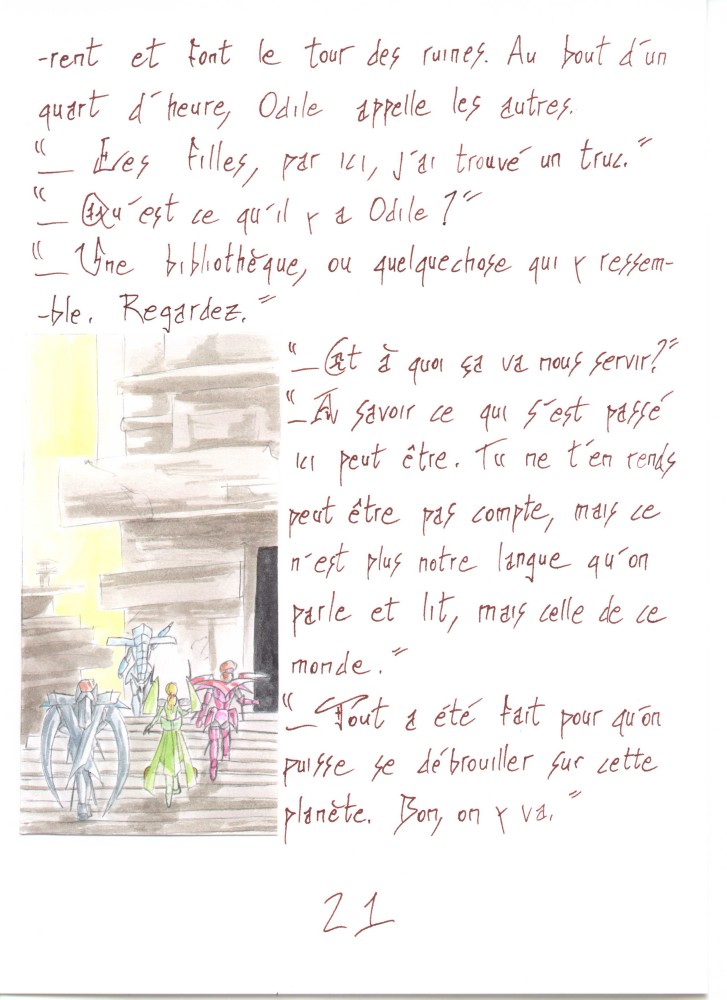 -rent et font le tour des ruines. Au bout d'un
quart d'heure, Odile appelle les autres.
"_ Les filles, par ici, j'ai trouvé un truc."
"_ Qu'est ce qu'il y a Odile ?"
"_ Une bibliothèque, ou quelquechose qui y ressem-
-ble. Regardez."
"_ Et à quoi ça va nous servir?"
"_ A savoir ce qui s'est passé
ici peut être. Tu ne t'en rends
peut être pas compte, mais ce
n'est plus notre langue qu'on
parle et lit, mais celle de ce
monde."
"_ Tout a été fait pour qu'on
puisse se débrouiller sur cette
planète. Bon, on y va."
21